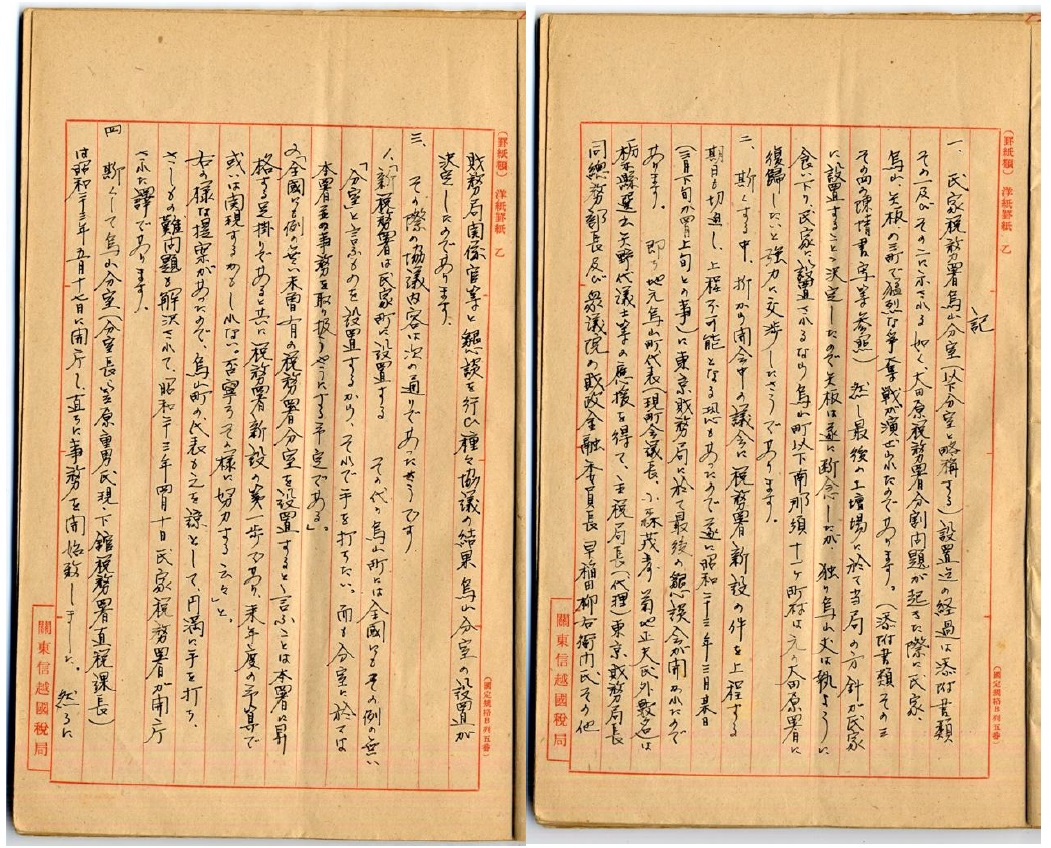 (罫紙類) 洋紙罫紙 乙
(國定規格B列五番)
記
一、民家税務署烏山分室(以下分室と略称する)設置迄の経過は添附書類
その一及びその二に示される如く、大田原税務署分割問題が起きた際に氏家
烏山、矢板の三町で猛烈な争奪戦が演出されたのであります。(添附書類その三
その四の陳情書写等参照) 然し最後の土壇場に於て当局の方針が氏家
に設置することゝ決定したので矢板は遂に断念したが、独り烏山丈は執ように
食い下り、民家に設置されるなら烏山町以下南那須十一ヶ町村は元の大田原署に
復帰したいと強力に交渉したさうであります。
二、斯くする中、折から開会中の議会に税務署新設の件を上程する
期日も切迫し、上程不可能となる恐もあつたので遂に昭和二十三年三月末日
(三月下旬か四月上旬との事)に東京財務局に於て最後の懇談会が開かれたので
あります。 即ち地元烏山町代表現町会議長、小森茂孝 菊地正夫氏外数名は
栃木縣選出天野代議士等の應援を得て、主税局長代理、東京財務局長
同総務部長及び衆議院の財政金融委員長 早稲田柳右衛門氏その他
關東信越國税局
(罫紙類) 洋紙罫紙 乙
(國定規格B列五番)
財務局関係官等と懇談を行ひ種々協議の結果烏山分室の設置が
決定したのであります。
三、その際の協議内容は次の通りであつたさうです
1、「新税務署は民家町に設置する その代り烏山町には全國にもその例の無い
「分室」と言ふものを設置するから、それで手を打ちたい。而も分室に於ては
本署並の事務を取り扱ふやうにする予定である。」
2、「全國にも例の無い未曽有の税務署分室を設置すると言ふことは本署に昇
格する足掛りであると共に税務署新設の第一歩であり、来年度の予算で
或いは実現するかもしれない。否寧ろその様に努力する云々」と
右の様な提案があつたので、烏山町の代表も之を諒として円満に手を打ち、
さしもの難問題も解決されて、昭和二十三年四月十日民家税務署が開庁
された譯であります。
四 斯くして烏山分室(分室長 笠原重男氏現、下館税務署直税課長)
は昭和二十三年五月十七日に開庁し、直ちに事務を開始致しました。 然るに
關東信越國税局